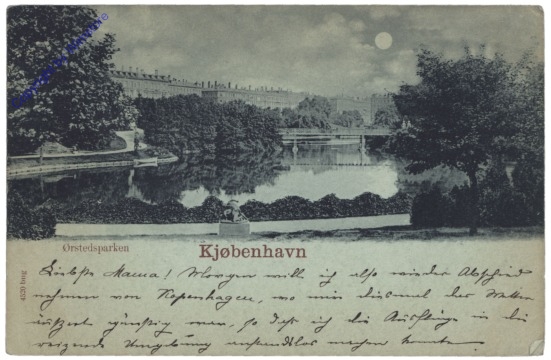 Ørstedsparken
Kjøbenhavn
4320 bug
Liebste Mama! Morgen will ich also wieder Abschied
nehmen von Kopenhagen, wo mir diesmal der Wetter
äußerst günstig war, so daß ich die Ausflüge in die
reizende Umgebung anstandslos machen konnte.